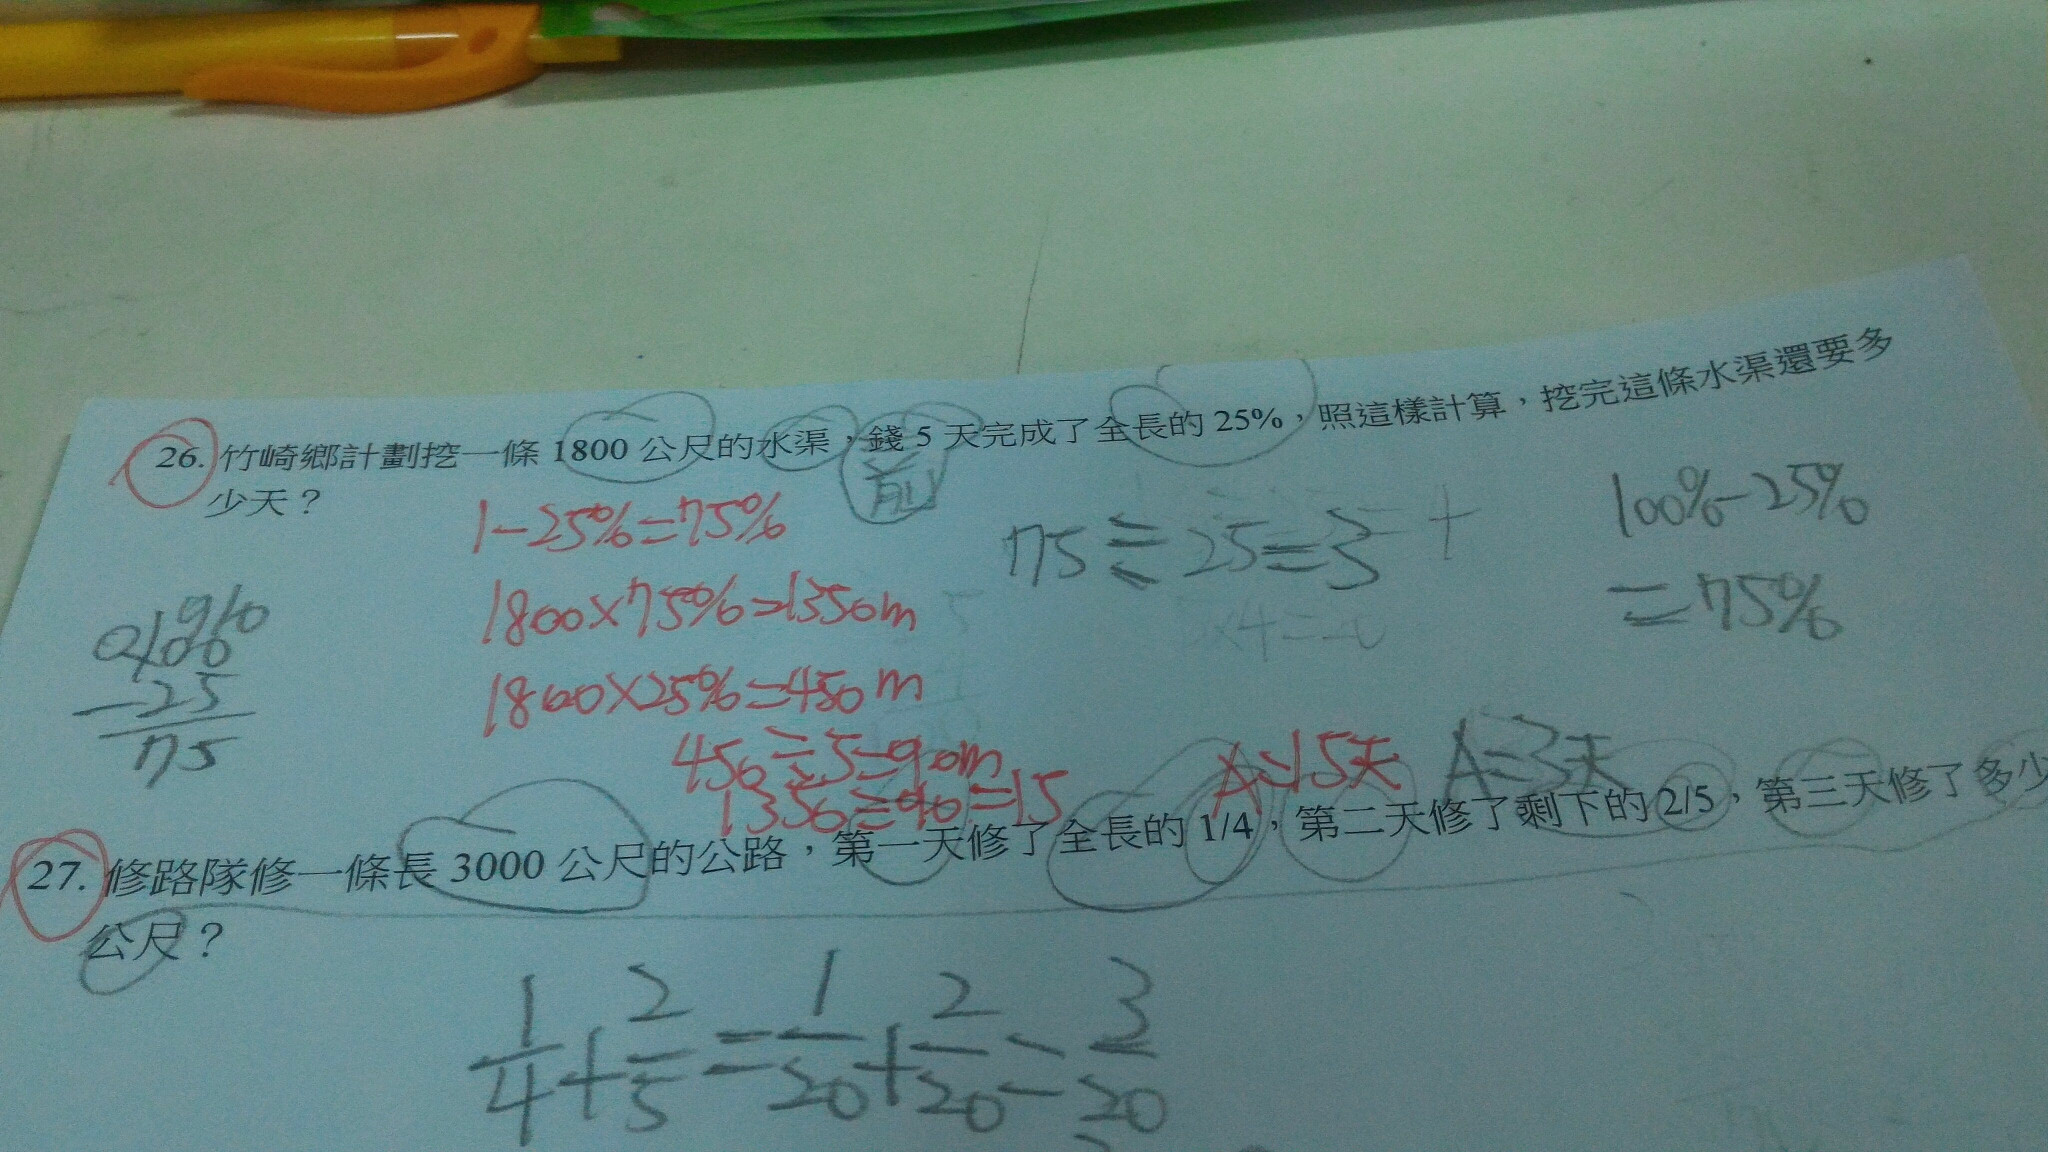 26. 竹崎鄉計劃挖一條 1800 公尺的水渠，錢 5 天完成了全長的 25%，照這樣計算，挖完這條水渠還要多
少天？
前
1-25%=75%
1800×75%=1350m
1800×25%=450m
450÷5=90m
1350÷90=15
A=15天
75÷25=3
×4=20
100%-25%
=75%
A=3天
100
-25
75
27. 修路隊修一條長 3000 公尺的公路，第一天修了全長的 1/4，第二天修了剩下的 2/5，第三天修了多少
公尺？
1/4+2/5=1/20+2/20=3/20